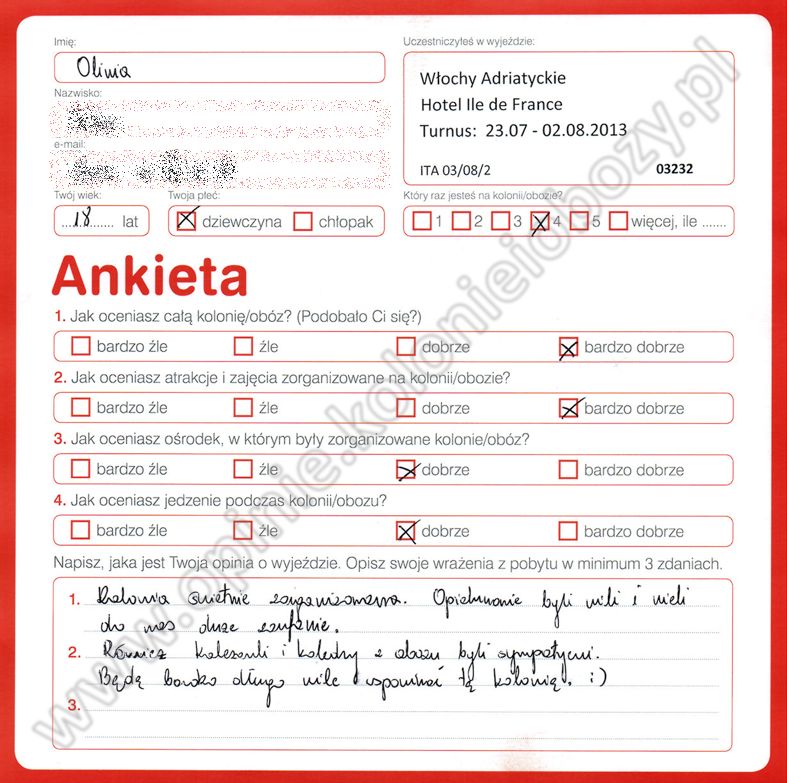 Imię:
Uczestniczyłeś w wyjeździe:
Olivia
Włochy Adriatyckie
Hotel Ile de France
Turnus: 23.07 - 02.08.2013
ITA 03/08/2
03232
Nazwisko:
e-mail:
Twój wiek:
Twoja płeć:
Który raz jesteś na kolonii/obozie?
18 lat
dziewczyna
chłopak
1 2 3 4 5 więcej, ile .......
Ankieta
1. Jak oceniasz całą kolonię/obóz? (Podobało Ci się?)
bardzo źle źle dobrze bardzo dobrze
2. Jak oceniasz atrakcje i zajęcia zorganizowane na kolonii/obozie?
bardzo źle źle dobrze bardzo dobrze
3. Jak oceniasz ośrodek, w którym były zorganizowane kolonie/obóz?
bardzo źle źle dobrze bardzo dobrze
4. Jak oceniasz jedzenie podczas kolonii/obozu?
bardzo źle źle dobrze bardzo dobrze
Napisz, jaka jest Twoja opinia o wyjeździe. Opisz swoje wrażenia z pobytu w minimum 3 zdaniach.
1. Kolonia świetnie zorganizowana. Opiekunowie byli mili i mieli
do nas duże zaufanie.
2. Również koleżanki i koledzy z obozu byli sympatyczni.
Będę bardzo długo mile wspominać tą kolonię. :)
3.
www.opinie.kolonieiobozy.pl